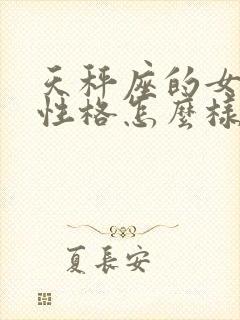 天秤座的女
性格怎麼樣
夏長安